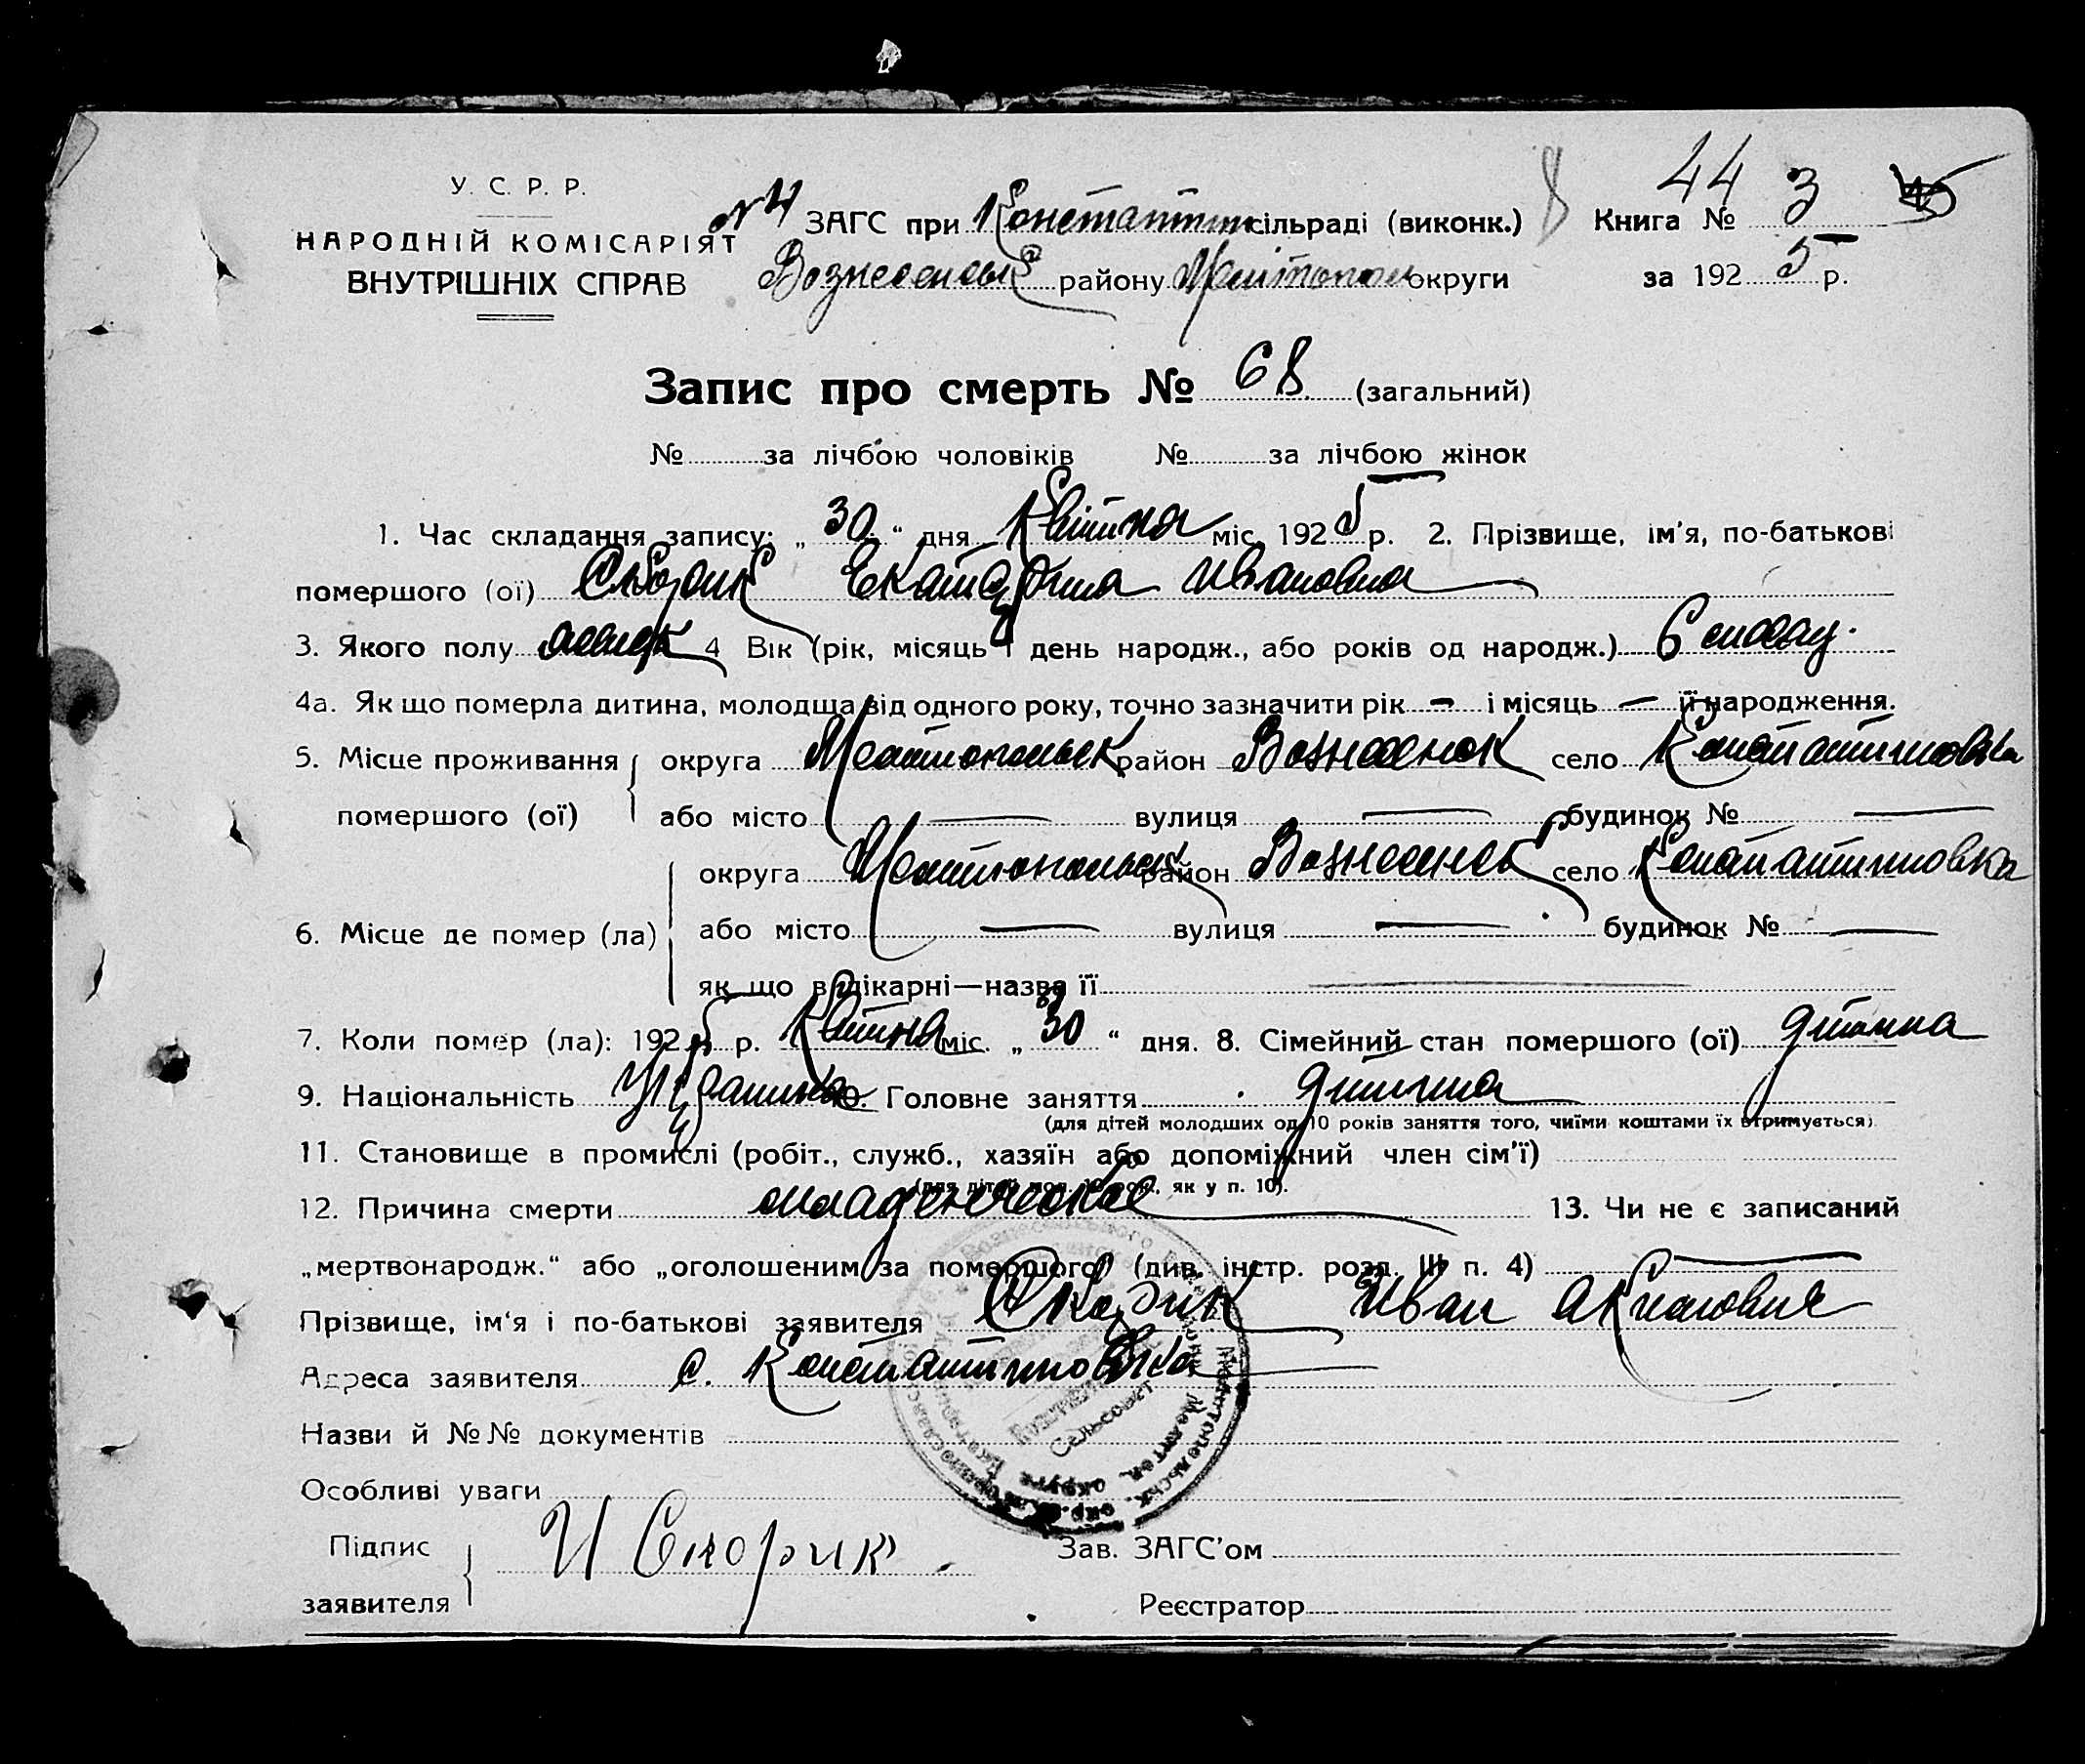 44 3
У. С. Р. Р.
НАРОДНІЙ КОМІСАРІЯТ
ВНУТРІШНІХ СПРАВ
ЗАГС при Константин сільраді (виконк.) Книга №
Вознесенськ району Мелітополь округи за 1925 р.
Запис про смерть № 68 (загальний)
№ за лічбою чоловіків № за лічбою жінок
1. Час складання запису: „ 30 “ дня Квітня міс. 1925 р. 2. Прізвище, ім'я, по-батькові
помершого (ої) Скорик Екатерина Ивановна
3. Якого полу 4 Вік (рік, місяць і день народж., або років од народж.) 6
4а. Як що померла дитина, молодша від одного року, точно зазначити рік — і місяць — її народження.
5. Місце проживання округа Мелитопольск район Вознесенск село Константиновка
помершого (ої) або місто — вулиця — будинок № —
округа Мелитопольск район Вознесенск село Константиновка
6. Місце де помер (ла) або місто — вулиця — будинок № —
як що в лікарні—назва її —
7. Коли помер (ла): 1925 р. Квітня міс. „ 30 “ дня. 8. Сімейний стан помершого (ої) дитина
9. Національність 10. Головне заняття дитина
(для дітей молодших од 10 років заняття того, чиїми коштами їх втримується)
11. Становище в промислі (робіт., служб., хазяїн або допоміжний член сім'ї)
(для дітей мол. 10 рок., як у п. 10).
12. Причина смерти младенческое 13. Чи не є записаний
„мертвонародж.“ або „оголошеним за помершого“ (див. інстр. розд. III п. 4) —
Прізвище, ім'я і по-батькові заявителя Скорик Иван
Адреса заявителя с. Константиновка
Назви й №№ документів
Сельсовет
Особливі уваги
Підпис И Скорик Зав. ЗАГС'ом
заявителя Реєстратор